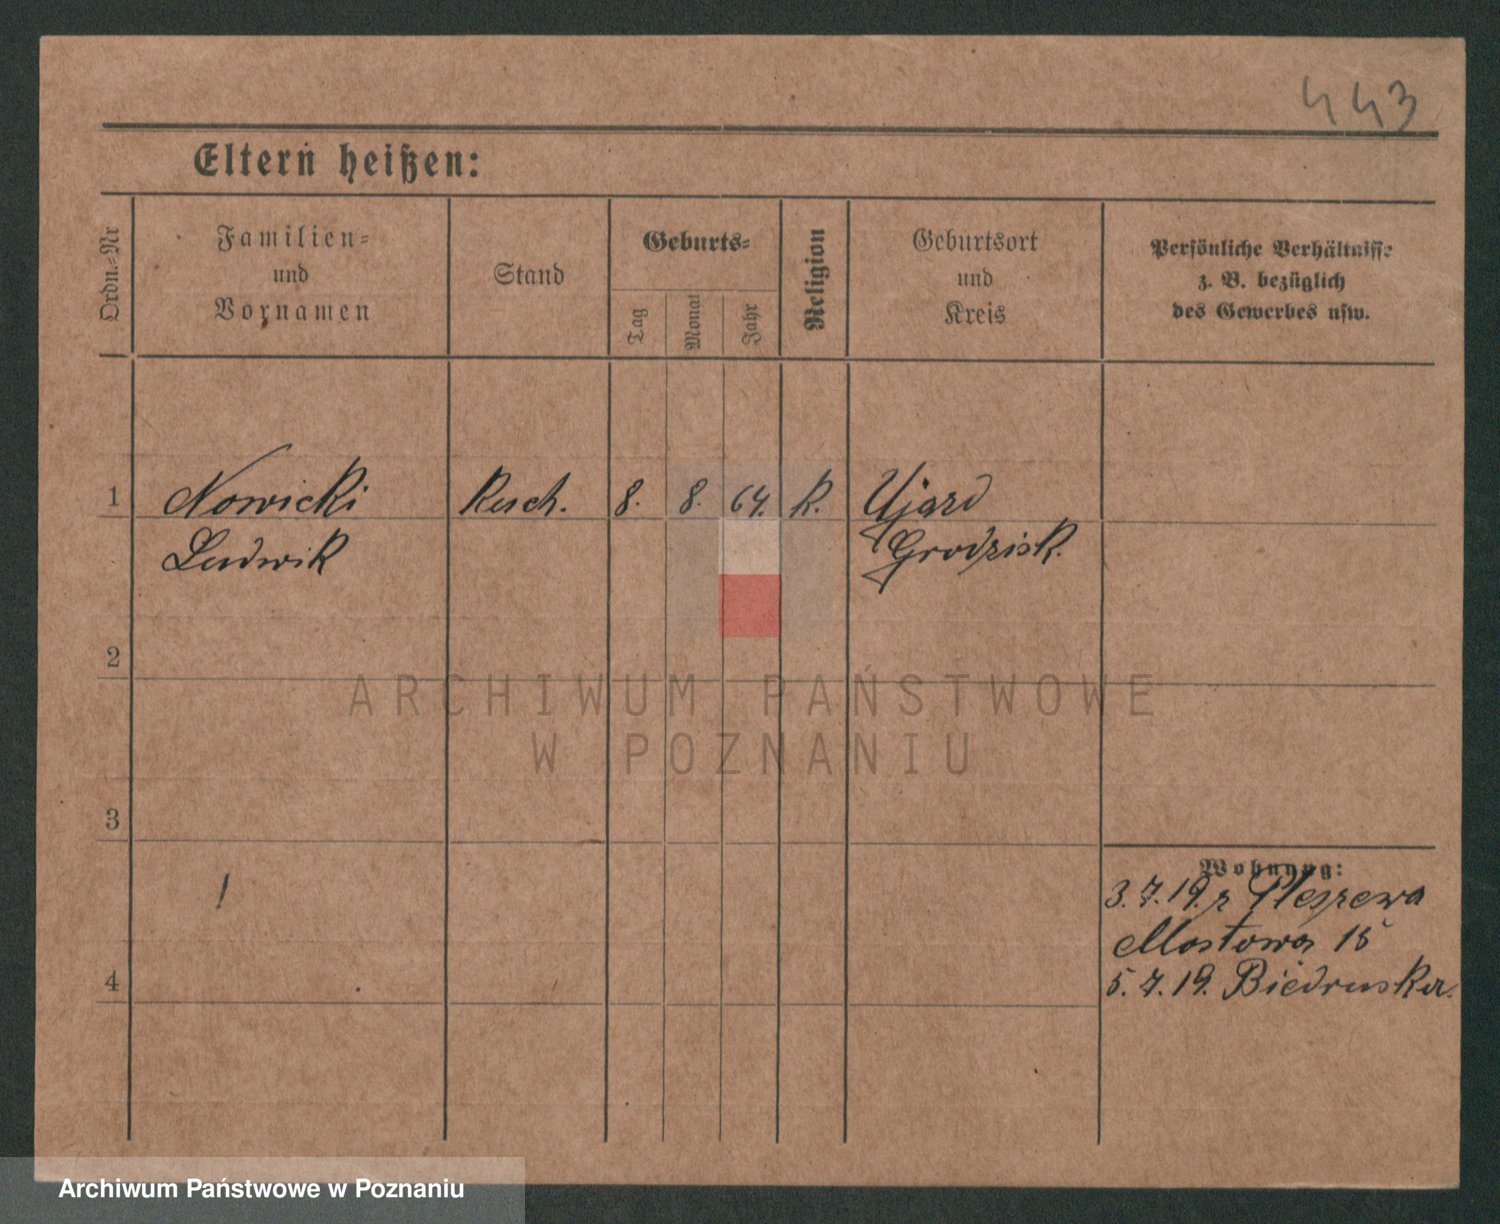 443
Eltern heißen:
Ordn.-Nr
Familien-
und
Vornamen
Stand
Geburts-
Tag
Monat
Jahr
Religion
Geburtsort
und
Kreis
Persönliche Verhältnisse
z. B. bezüglich
des Gewerbes usw.
1 Nowicki 8. 8. 64. K. Ujazd
Ludwik Grodzisk.
2
ARCHIWUM PAŃSTWOWE
W POZNANIU
3
Wohnung:
3.7.19. z Pleszewa
Mostowa 15
4 5.7.19. Biedrusko
Archiwum Państwowe w Poznaniu